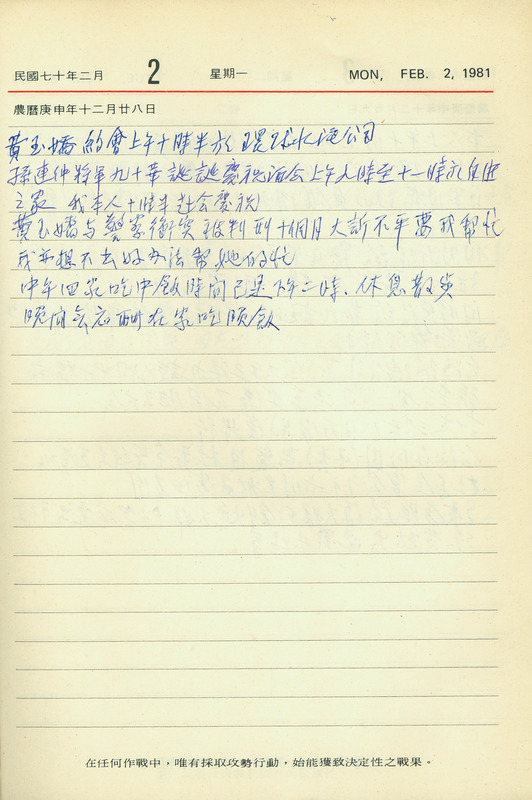 民國七十年二月 2 星期一 MON, FEB. 2, 1981
農曆庚申年十二月廿八日
黃玉嬌約會上午十時半於環球水泥公司
孫連仲將軍九十華誕誕慶祝酒會上午九時至十一時於自由
之家 我本人十時半赴會慶祝
黃玉嬌與警察衝突被判刑十個月大訴不平要我幫忙
我亦想不出好辦法幫她的忙
中午回家吃中飯時間已過下午二時、休息散步
晚間無應酬在家吃晚飯
在任何作戰中，唯有採取攻勢行動，始能獲致決定性之戰果。